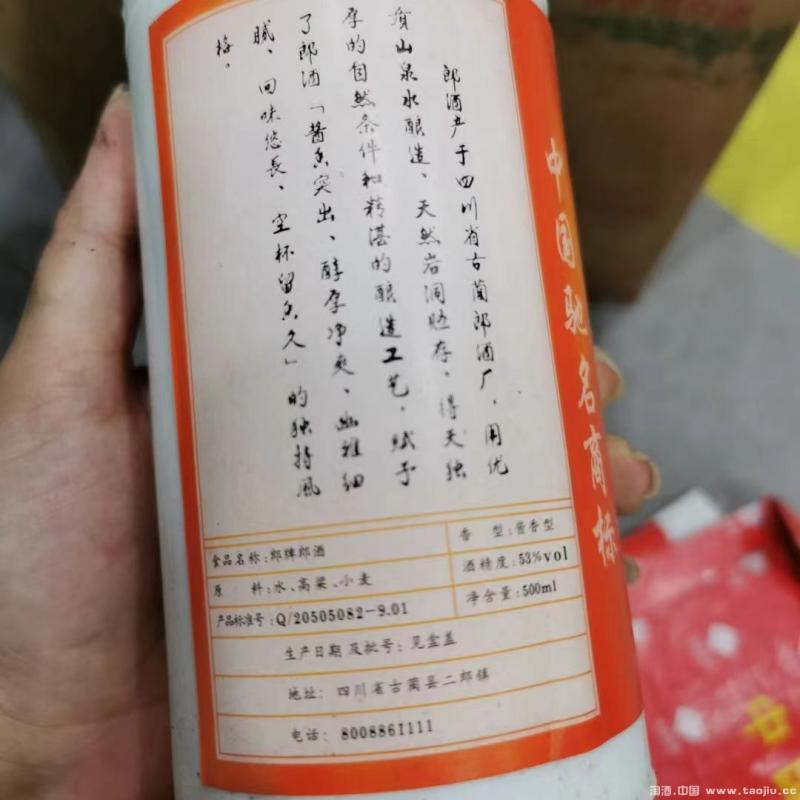 郎酒产于四川省古蔺郎酒厂，用优
质山泉水酿造、天然岩洞贮存。得天独
厚的自然条件和精湛的酿造工艺，赋予
了郎酒「酱香突出、醇厚净爽、幽雅细
腻、回味悠長、空杯留香久」的独特风
格。
中国驰名商标
食品名称：郎牌郎酒
香 型：酱香型
原 料：水、高粱、小麦
酒精度：53%vol
产品标准号：Q/20505082-9.01
净含量：500ml
生产日期及批号：见盒盖
地址：四川省古蔺县二郎镇
电话：8008861111
淘酒.中国 www.taojiu.cc